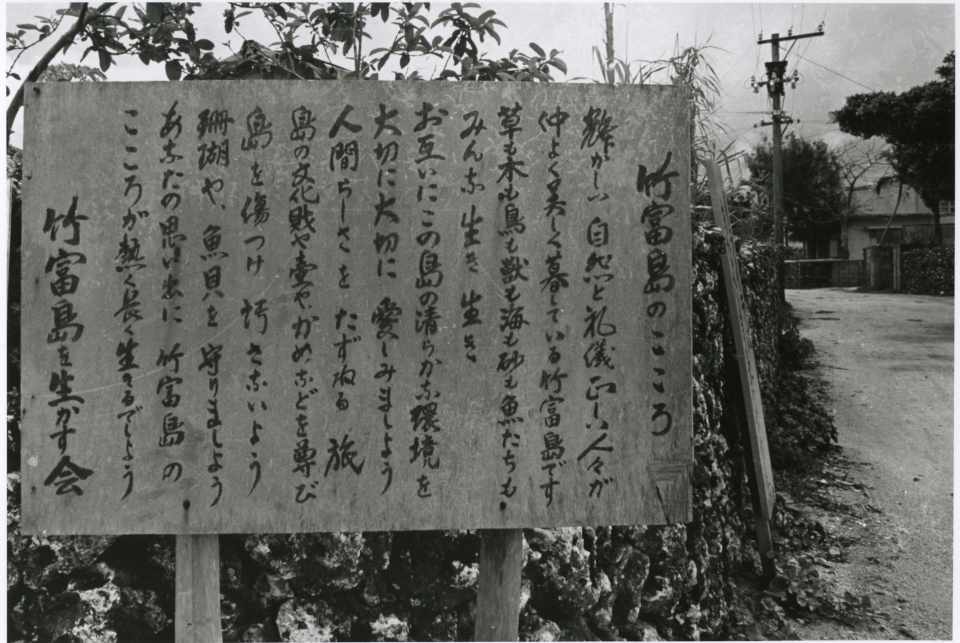 竹富島のこころ
輝かしい自然と礼儀正しい人々が
仲よく美しく暮している竹富島です
草も木も鳥も獣も海も砂も魚たちも
みんな生き生き
お互いにこの島の清らかな環境を
大切に大切に愛しみましよう
人間らしさをたずねる旅
島の文化財や壷やかめなどを尊び
島を傷つけ汚さないよう
珊瑚や、魚貝を守りましよう
あなたの思い出に竹富島の
こころが熱く長く生きるでしよう
竹富島を生かす会